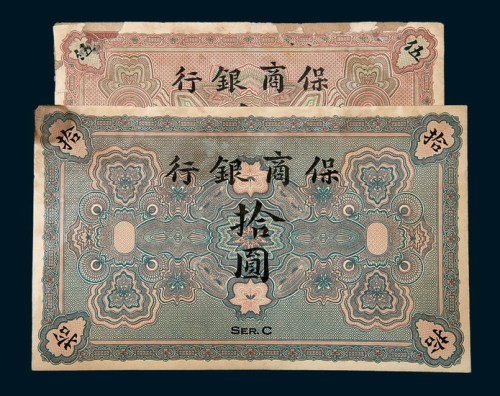 伍 伍
保商銀行
拾 拾
保商銀行
拾
圓
SER. C
拾 拾